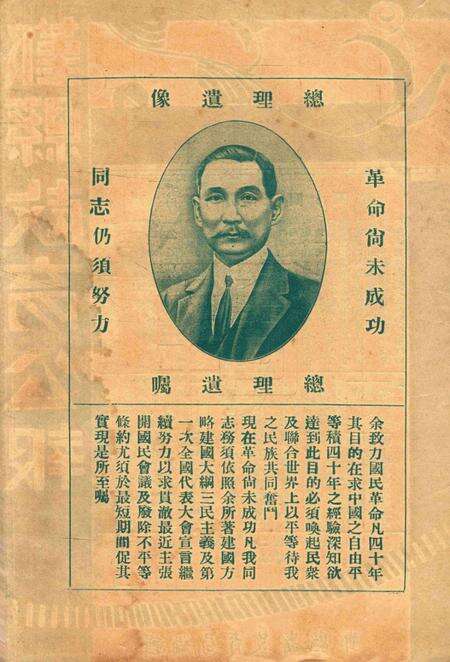 總理遺像
革命尙未成功
同志仍須努力
總理遺囑
余致力國民革命凡四十年
其目的在求中國之自由平
等積四十年之經驗深知欲
達到此目的必須喚起民衆
及聯合世界上以平等待我
之民族共同奮鬥
現在革命尙未成功凡我同
志務須依照余所著建國方
略建國大綱三民主義及第
一次全國代表大會宣言繼
續努力以求貫澈最近主張
開國民會議及廢除不平等
條約尤須於最短期間促其
實現是所至囑